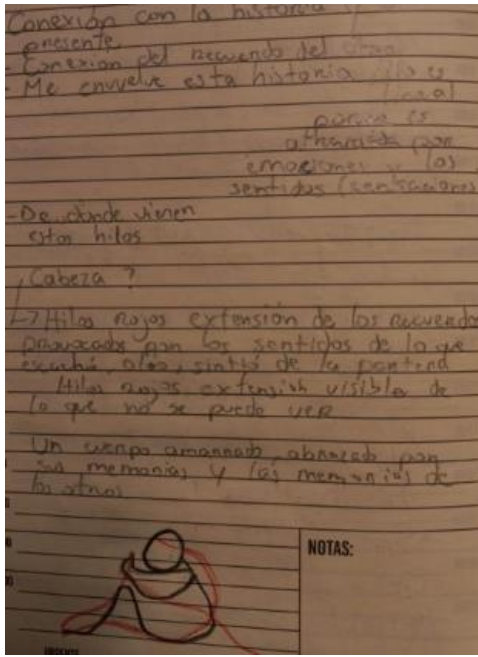 Conexión con la historia y
presente
- Conexion del recuerdo del otro
- Me envuelve esta historia No es
lineal
porque es
atravesada por
emociones y los
sentidos (sensaciones
- De donde vienen
estos hilos
¿Cabeza?
→ Hilos rojos extensión de los recuerdos
provocados por los sentidos de lo que
escuchó, olió, sintió de la
Hilos rojos extensión visible de
lo que no se puede ver
Un cuerpo amarrado, abrazado por
sus memorias y las memorias de
los otros
NOTAS: